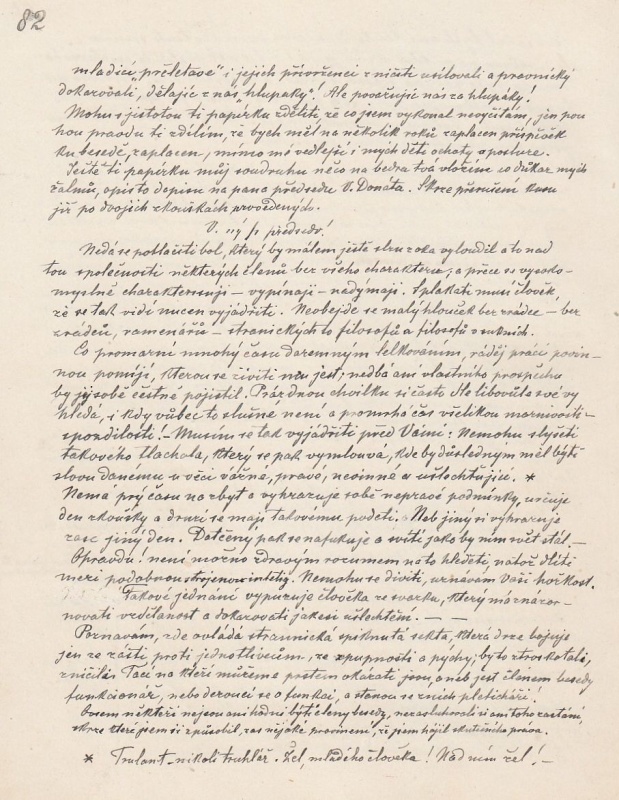 82
mladící „přeletavé" i jejich přívrženci zničiti usilovali a pravnický
dokazovali, dělajíc z nás hlupáky". Ale považují nás za hlupáky!
Mohu s jistotou ti papírku zděliti, že co jsem vykonal nevyčítám, jen pou
hou pravdu ti zdílím, že bych měl na několik roků zaplacen příspěvěk
ku besedě, zaplacen, mimo mé vedlejší i mých dětí ochoty a
Ještě ti papírku můj soudruhu něco na bedra tvá vložím co důkaz mých
žalmů, opis to dopisu na pana předsedu V. Donáta. Skrze přerušení kusu
již po dvojích zkouškách provedených.
V. předsedo!
Nedá se potlačiti bol, který by málem ještě slzu zoka vyloudil a to nad
tou společností některých členů bez všeho charakteru; a přece se vysoko-
myslně charakterisují - vypínají - nadýmají. Splakati musí člověk,
že se tak vidí nucen vyjádřiti. Neobejde se malý hlouček bez zrádce - bez
zrádců, ramenářů - stranických to filosofů a filosofů v sukních.
Co promarní mnohý času daremným lelkováním, ráděj práci povin-
nou pomíjí, kterou se živiti mu jest; nedbá ani vlastního prospěchu
by jej sobě čestně pojistil. Prázdnou chvilku si často dle libovůle své vy
hledá, i kdy vůbec to slušné není a promrhá čas všelikou marnivostí -
spozdilostí! - Musím se tak vyjádřiti před Vámi: Nemohu slyšeti
takového tlachala, který se pak vymlouvá, kde by důsledným měl býti
slovu danému u věci vážné, pravé, nevinné a ušlechtující. *
Nemá prý času na zbyt a vyhrazuje sobě nepravé podmínky, určuje
den zkoušky a druzí se mají takovému Neb jiný si vyhrazuje
zasc jiný den. Dotčený pak se nafukuje a svítí jako by nim svět stál. -
Opravdu! není možno zdravým rozumem na to hleděti, natož dlíti
mezi podobnou strojenou intelig. Nemohu se diviti, uznávám Vaši hořkost.
Takové jednání vypuzuje člověka ze svazku, který má znázor-
novati vzdělanost a dokazovati jakési ušlechtění. - -
Poznávám, zde ovládá strannická spiknutá sekta, která drze bojuje
jen ze zášti proti jednotlivcům, ze zpupnosti a pýchy; by to ztroskotali,
zničili. Tací na kteří můžeme prstem okázati jsou, aneb jest členem besedy
funkcionář, nebo derouci se o funkci, a stanou se z nich pletichaři!
Ovsem někteří nejsou ani hodni býti členy besedy, nezasluhovali si ani toho zastání,
skrze které jsem si způsobil, zas nějaké provinění, že jsem hájil skutečného práva.
* Trulant - nikoli truhlář. Žel, mladého člověka! Nad ním žel! -